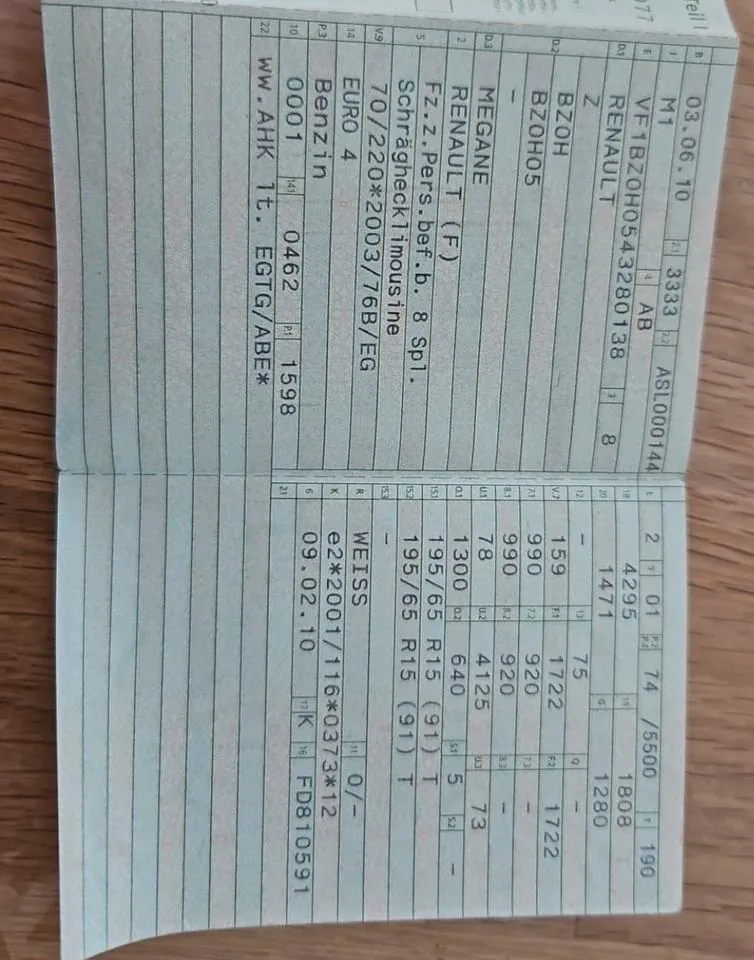 eill
077
B 03.06.10 2.1 3333 2.2 ASL000144
J M1 4 AB
E VF1BZ0H0543280138 3 8
D.1 RENAULT
Z
D.2 BZ0H
BZ0H05
-
D.3 MEGANE
2 RENAULT (F)
5 Fz.z.Pers.bef.b. 8 Spl.
Schräghecklimousine
V.9 70/220*2003/76B/EG
14 EURO 4
P.3 Benzin
10 0001 14.1 0462 P.1 1598
22 ww.AHK lt. EGTG/ABE*
L 2 9 01 P.2 P.4 74 /5500 T 190
18 4295 19 1808
20 1471 G 1280
12 - 13 75 Q -
V.7 159 F.1 1722 F.2 1722
7.1 990 7.2 920 7.3 -
8.1 990 8.2 920 8.3 -
U.1 78 U.2 4125 U.3 73
O.1 1300 O.2 640 S.1 5 S.2 -
15.1 195/65 R15 (91) T
15.2 195/65 R15 (91) T
15.3 -
R WEISS 11 0/-
K e2*2001/116*0373*12
6 09.02.10 17 K 16 FD810591
21